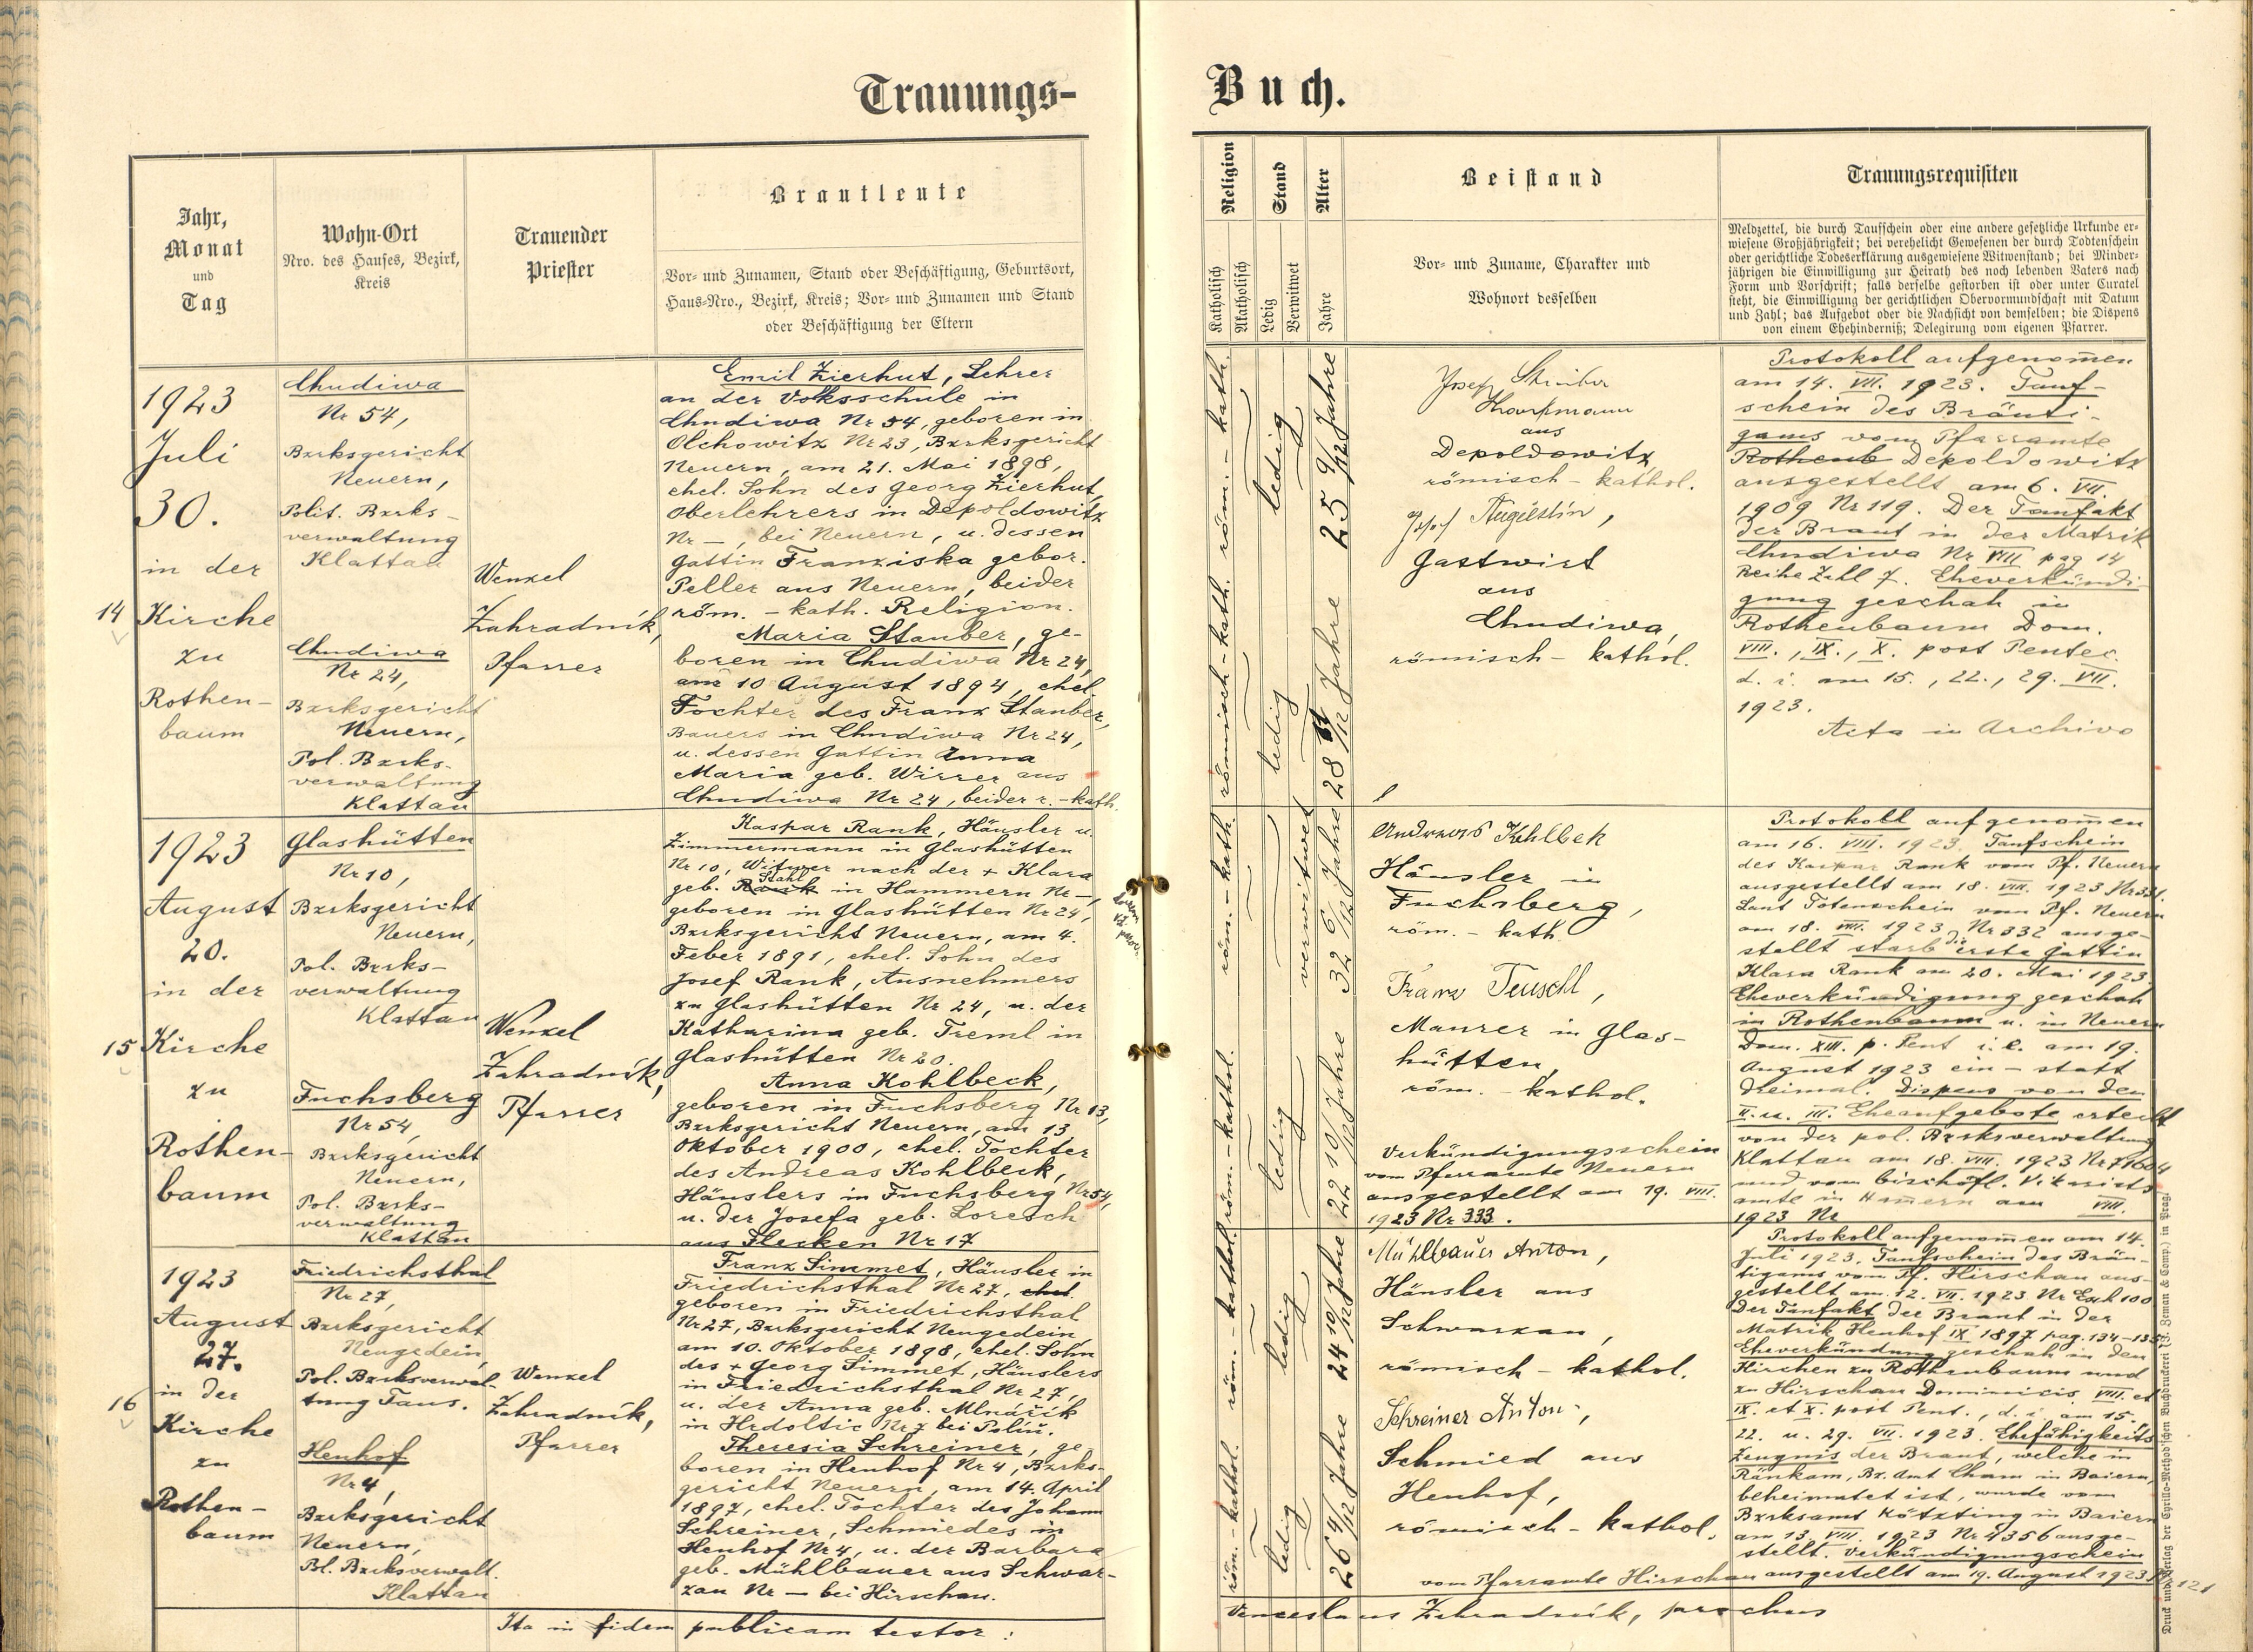 Trauungs-
Jahr,
Monat
und
Tag
Wohn-Ort
Nro. des Hauses, Bezirk,
Kreis
Trauender
Priester
Brautleute
Vor- und Zunamen, Stand oder Beschäftigung, Geburtsort,
Haus-Nro., Bezirk, Kreis; Vor- und Zunamen und Stand
oder Beschäftigung der Eltern
14
1923
Juli
30.
in der
Kirche
zu
Rothen-
baum
Chudiwa
Nr 54,
Bzrksgericht
Neuern,
Polit. Bzrks-
verwaltung
Klattau
Chudiwa
Nr 24,
Bzrksgericht
Neuern,
Pol. Bzrks-
verwaltung
Klattau
Wenzel
Zahradník,
Pfarrer
Emil Zierhut, Lehrer
an der Volksschule in
Chudiwa Nr 54, geboren in
Olchowitz Nr 23, Bzrksgericht
Neuern, am 21. Mai 1898,
ehel. Sohn des Georg Zierhut,
Oberlehrers in Depoldowitz
Nr —, bei Neuern, u. dessen
Gattin Franziska gebor.
Peller aus Neuern, beider
röm. - kath. Religion.
Maria Stauber, ge-
boren in Chudiwa Nr 24,
am 10 August 1894, ehel.
Tochter des Franz Stauber,
Bauers in Chudiwa Nr 24,
u. dessen Gattin Anna
Maria geb. Wirrer aus
Chudiwa Nr 24, beider r. - kath.
15
1923
August
20.
in der
Kirche
zu
Rothen-
baum
Glashütten
Nr 10,
Bzrksgericht
Neuern,
Pol. Bzrks-
verwaltung
Klattau
Fuchsberg
Nr 54,
Bzrksgericht
Neuern,
Pol. Bzrks-
verwaltung
Klattau
Wenzel
Zahradník,
Pfarrer
Kaspar Rank, Häusler u.
Zimmermann in Glashütten
Nr 10, Witwer nach der + Klara
Stahl
geb. Rank in Hammern Nr —,
geboren in Glashütten Nr 24,
Bzrksgericht Neuern, am 4.
Feber 1891, ehel. Sohn des
Josef Rank, Ausnehmers
zu Glashütten Nr 24, u. der
Katharina geb. Treml in
Glashütten Nr 20.
Anna Kohlbeck,
geboren in Fuchsberg Nr 13,
Bzrksgericht Neuern, am 13
Oktober 1900, ehel. Tochter
des Andreas Kohlbeck,
Häuslers in Fuchsberg Nr 54,
u. der Josefa geb. Loresch
aus Flecken Nr 17
16
1923
August
27.
in der
Kirche
zu
Rothen-
baum
Friedrichsthal
Nr 27,
Bzrksgericht
Neugedein,
Pol. Bzrksverwal-
tung Taus.
Henhof
Nr 4,
Bzrksgericht
Neuern,
Pol. Bzrksverwalt.
Klattau
Wenzel
Zahradník,
Pfarrer
Franz Simmet, Häusler in
Friedrichsthal Nr 27, ehel.
geboren in Friedrichsthal
Nr 27, Bzrksgericht Neugedein,
am 10. Oktober 1898, ehel. Sohn
des + Georg Simmet, Häuslers
in Friedrichsthal Nr 27,
u. der Anna geb. Mlnářík
in Hrdoltic Nr 7 bei Polín.
Theresia Schreiner, ge-
boren in Henhof Nr 4, Bzrks-
gericht Neuern, am 14. April
1897, ehel. Tochter des Johann
Schreiner, Schmiedes in
Henhof Nr 4, u. der Barbara
geb. Mühlbauer aus Schwar-
zau Nr — bei Hirschau.
Ita in fidem publicam testor:
Buch.
Religion
Katholisch
Akatholisch
Stand
Ledig
Verwitwet
Alter
Jahre
Beistand
Vor- und Zuname, Charakter und
Wohnort desselben
Trauungsrequisiten
Meldzettel, die durch Taufschein oder eine andere gesetzliche Urkunde er-
wiesene Großjährigkeit; bei verehelicht Gewesenen der durch Todtenschein
oder gerichtliche Todeserklärung ausgewiesene Witwenstand; bei Minder-
jährigen die Einwilligung zur Heirath des noch lebenden Vaters nach
Form und Vorschrift; falls derselbe gestorben ist oder unter Curatel
steht, die Einwilligung der gerichtlichen Obervormundschaft mit Datum
und Zahl; das Aufgebot oder die Nachsicht von demselben; die Dispens
von einem Ehehinderniß; Delegirung vom eigenen Pfarrer.
röm. - kath.
ledig
25 9/12 Jahre
römisch - kath.
ledig
28 11/12 Jahre
Josef
aus
Depoldowitz,
römisch - kathol.
Josef Augustin,
Gastwirt
aus
Chudiwa,
römisch - kathol.
Protokoll aufgenom̄en
am 14. VII. 1923. Tauf-
schein des Bräuti-
gams vom Pfarramte
Rothenb Depoldowitz
ausgestellt am 6. VII.
1909 Nr 119. Der Taufakt
der Braut in der Matrik
Chudiwa Nr VIII pag 14
Reihe Zahl 7. Eheverkündi-
gung geschah in
Rothenbaum Dom.
VIII., IX., X. post Pentec.
d. i. am 15., 22., 29. VII.
1923.
Acta in Archivo
röm. - kath.
verwitwet
32 6/12 Jahre
röm. - kathol.
ledig
22 10/12 Jahre
Andreas Kohlbek
Häusler in
Fuchsberg,
röm. - kath.
Franz Teuschl,
Maurer in Glas-
hütten,
röm. - kathol.
Verkündigungsschein
vom Pfarramte Neuern
ausgestellt am 19. VIII.
1923 Nr 333.
Protokoll aufgenom̄en
am 16. VIII. 1923. Taufschein
des Kaspar Rank vom Pf. Neuern
ausgestellt am 18. VIII. 1923 Nr 331.
Laut Totenschein vom Pf. Neuern
am 18. VIII. 1923, Nr 332 ausge-
stellt starb die erste Gattin
Klara Rank am 20. Mai 1923.
Eheverkündigung geschah
in Rothenbaum u. in Neuern
Dom. XIII. p. Pent i. e. am 19.
August 1923 ein - statt
dreimal. Dispens von den
II. u. III. Eheaufgebote erteilt
von der pol. Bzrksverwaltung
Klattau am 18. VIII. 1923 Nr 71604
und vom bischöfl. Vikariats-
amte in Ham̄ern am VIII.
1923 Nr
röm. - kathol.
ledig
24 10/12 Jahre
röm. - kathol.
ledig
26 4/12 Jahre
Mühlbauer Anton,
Häusler aus
Schwarzau,
römisch - kathol.
Schreiner Anton,
Schmied aus
Henhof,
römisch - kathol.
Protokoll aufgenom̄en am 14.
Juli 1923. Taufschein des Bräu-
tigams vom Pf. Hirschau aus-
gestellt am 12. VII. 1923 Nr Exh 100
Der Taufakt der Braut in der
Matrik Henhof IX 1897 pag. 134-135.
Eheverkündung geschah in den
Kirchen zu Rothenbaum und
zu Hirschau Dominicis VIII. et
IX. et X. post Pent., d. i. am 15.,
22. u. 29. VII. 1923. Ehefähigkeits
Zeugnis der Braut, welche in
Ränkam, Bz. Amt Cham in Baiern,
beheimatet ist, wurde vom
Bzrksamt Kötzting in Baiern
am 13. VIII. 1923 Nr 4356 ausge-
stellt. Verkündigungsschein
vom Pfarramte Hirschau ausgestellt am 19. August 1923 Nr 121
Venceslaus Zahradník, parochus
Druck und Verlag der Cyrillo-Method'schen Buchdruckerei (J. Zeman & Comp.) in Prag.